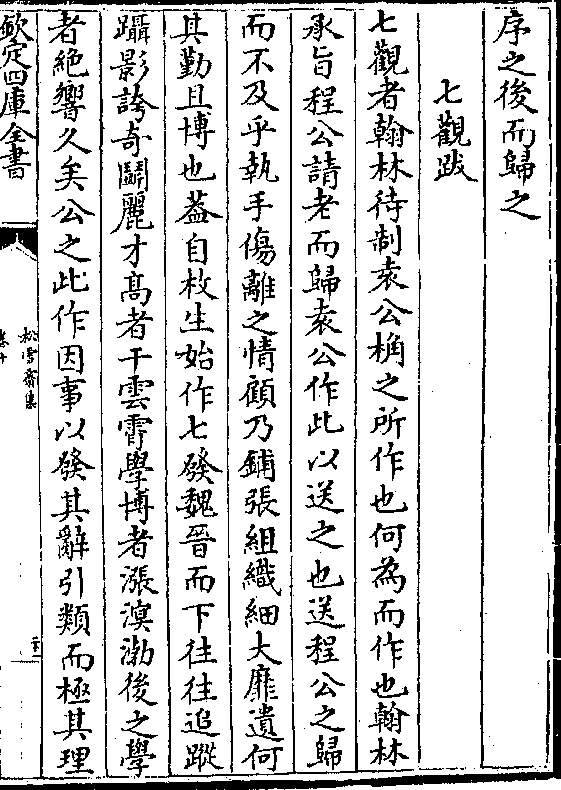 序之後而歸之
七觀跋
七觀者翰林待制袁公桷之所作也何為而作也翰林
承旨程公請老而歸袁公作此以送之也送程公之歸
而不及乎執手傷離之情顧乃鋪張組織細大靡遺何
其勤且博也葢自枚生始作七發魏晉而下往往追蹤
躡影誇奇鬬麗才髙者干雲霄學博者漲溟渤後之學
者絶響久矣公之此作因事以發其辭引類而極其理
欽定四庫全書
松雪齋集
卷十